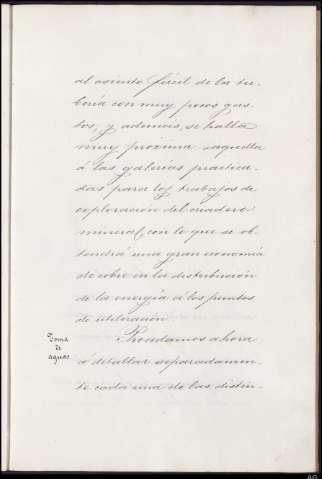 al asiento fácil de la tu-
bería con muy pocos gas-
tos, y además, se halla
muy próxima aquella
á las galerías practica-
das para los trabajos de
exploración del criadero
mineral, con lo que se ob-
tendrá una gran economía
de cobre en la distribución
de la energía á los puntos
de utilización
Toma
de
aguas
Procedamos ahora
á detallar separadamen-
te cada una de las distin-
AG